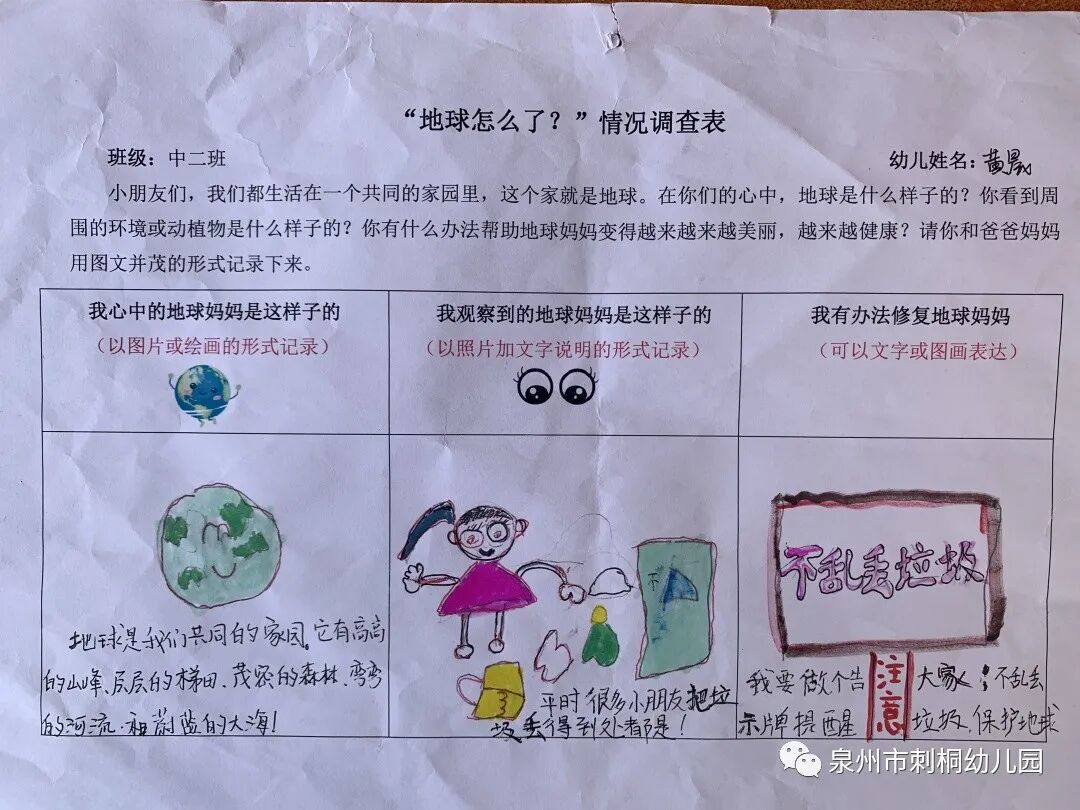 “地球怎么了？”情况调查表
班级：中二班
幼儿姓名：黄晟
小朋友们，我们都生活在一个共同的家园里，这个家就是地球。在你们的心中，地球是什么样子的？你看到周
围的环境或动植物是什么样子的？你有什么办法帮助地球妈妈变得越来越越美丽，越来越健康？请你和爸爸妈妈
用图文并茂的形式记录下来。
我心中的地球妈妈是这样子的
（以图片或绘画的形式记录）
我观察到的地球妈妈是这样子的
（以照片加文字说明的形式记录）
我有办法修复地球妈妈
（可以文字或图画表达）
地球是我们共同的家园。它有高高
的山峰、层层的梯田、茂密的森林、弯弯
的河流．和蔚蓝的大海！
不
3
平时很多小朋友把垃
圾丢得到处都是！
不乱丢垃圾
我要做个告
示牌提醒
注意
大家：不乱丢
垃圾．保护地球
泉州市刺桐幼儿园